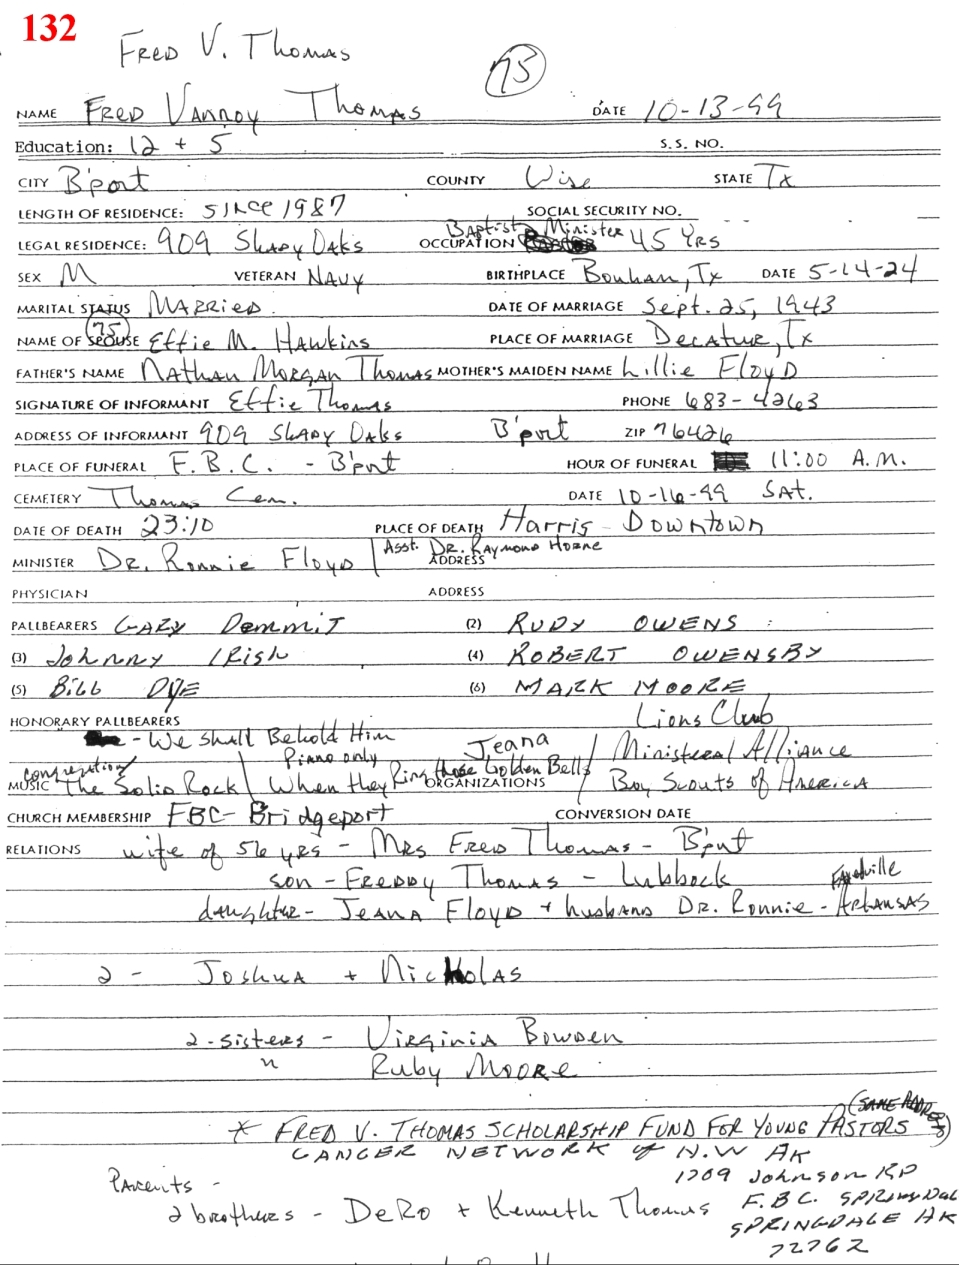 132
Fred V. Thomas
75
NAME Fred Vanroy Thomas DATE 10-13-99
Education: 12 + 5 S.S. NO.
CITY B'port COUNTY Wise STATE Tx
LENGTH OF RESIDENCE: Since 1987 SOCIAL SECURITY NO.
Baptist Minister
LEGAL RESIDENCE: 909 Shady Oaks OCCUPATION 45 Yrs
SEX M VETERAN Navy BIRTHPLACE Bonham, Tx DATE 5-14-24
MARITAL STATUS Married DATE OF MARRIAGE Sept. 25, 1943
(75)
NAME OF SPOUSE Effie M. Hawkins PLACE OF MARRIAGE Decatur, Tx
FATHER'S NAME Nathan Morgan Thomas MOTHER'S MAIDEN NAME Lillie Floyd
SIGNATURE OF INFORMANT Effie Thomas PHONE 683-4263
ADDRESS OF INFORMANT 909 Shady Oaks B'port ZIP 76426
PLACE OF FUNERAL F.B.C. - B'port HOUR OF FUNERAL 11:00 A.M.
CEMETERY Thomas Cem. DATE 10-16-99 Sat.
DATE OF DEATH 23:10 PLACE OF DEATH Harris - Downtown
Asst. Dr. Raymond Horne
MINISTER Dr. Ronnie Floyd ADDRESS
PHYSICIAN ADDRESS
PALLBEARERS Gary Demmit (2) Rudy Owens
(3) Johnny Irish (4) Robert Owensby
(5) Bill Dye (6) Mark Moore
HONORARY PALLBEARERS Lions Club
- We Shall Behold Him Jeana / Ministeral Alliance
Piano only
congregation
MUSIC The Solid Rock / When they Ring those Golden Bells ORGANIZATIONS Boy Scouts of America
CHURCH MEMBERSHIP FBC- Bridgeport CONVERSION DATE
RELATIONS wife of 56 yrs - Mrs Fred Thomas - B'port
son - Freddy Thomas - Lubbock
daughter - Jeana Floyd + husband Dr. Ronnie - Arkansas
2 - Joshua + Nicholas
2 - sisters - Virginia Bowden
" Ruby Moore
(SAME ADDRESS)
* FRED V. THOMAS SCHOLARSHIP FUND FOR YOUNG PASTORS
CANCER NETWORK of N.W AK
1709 Johnson RD
Parents -
2 brothers - DeRo + Kenneth Thomas
F.B.C. SPRINGDALE
SPRINGDALE AK
72762